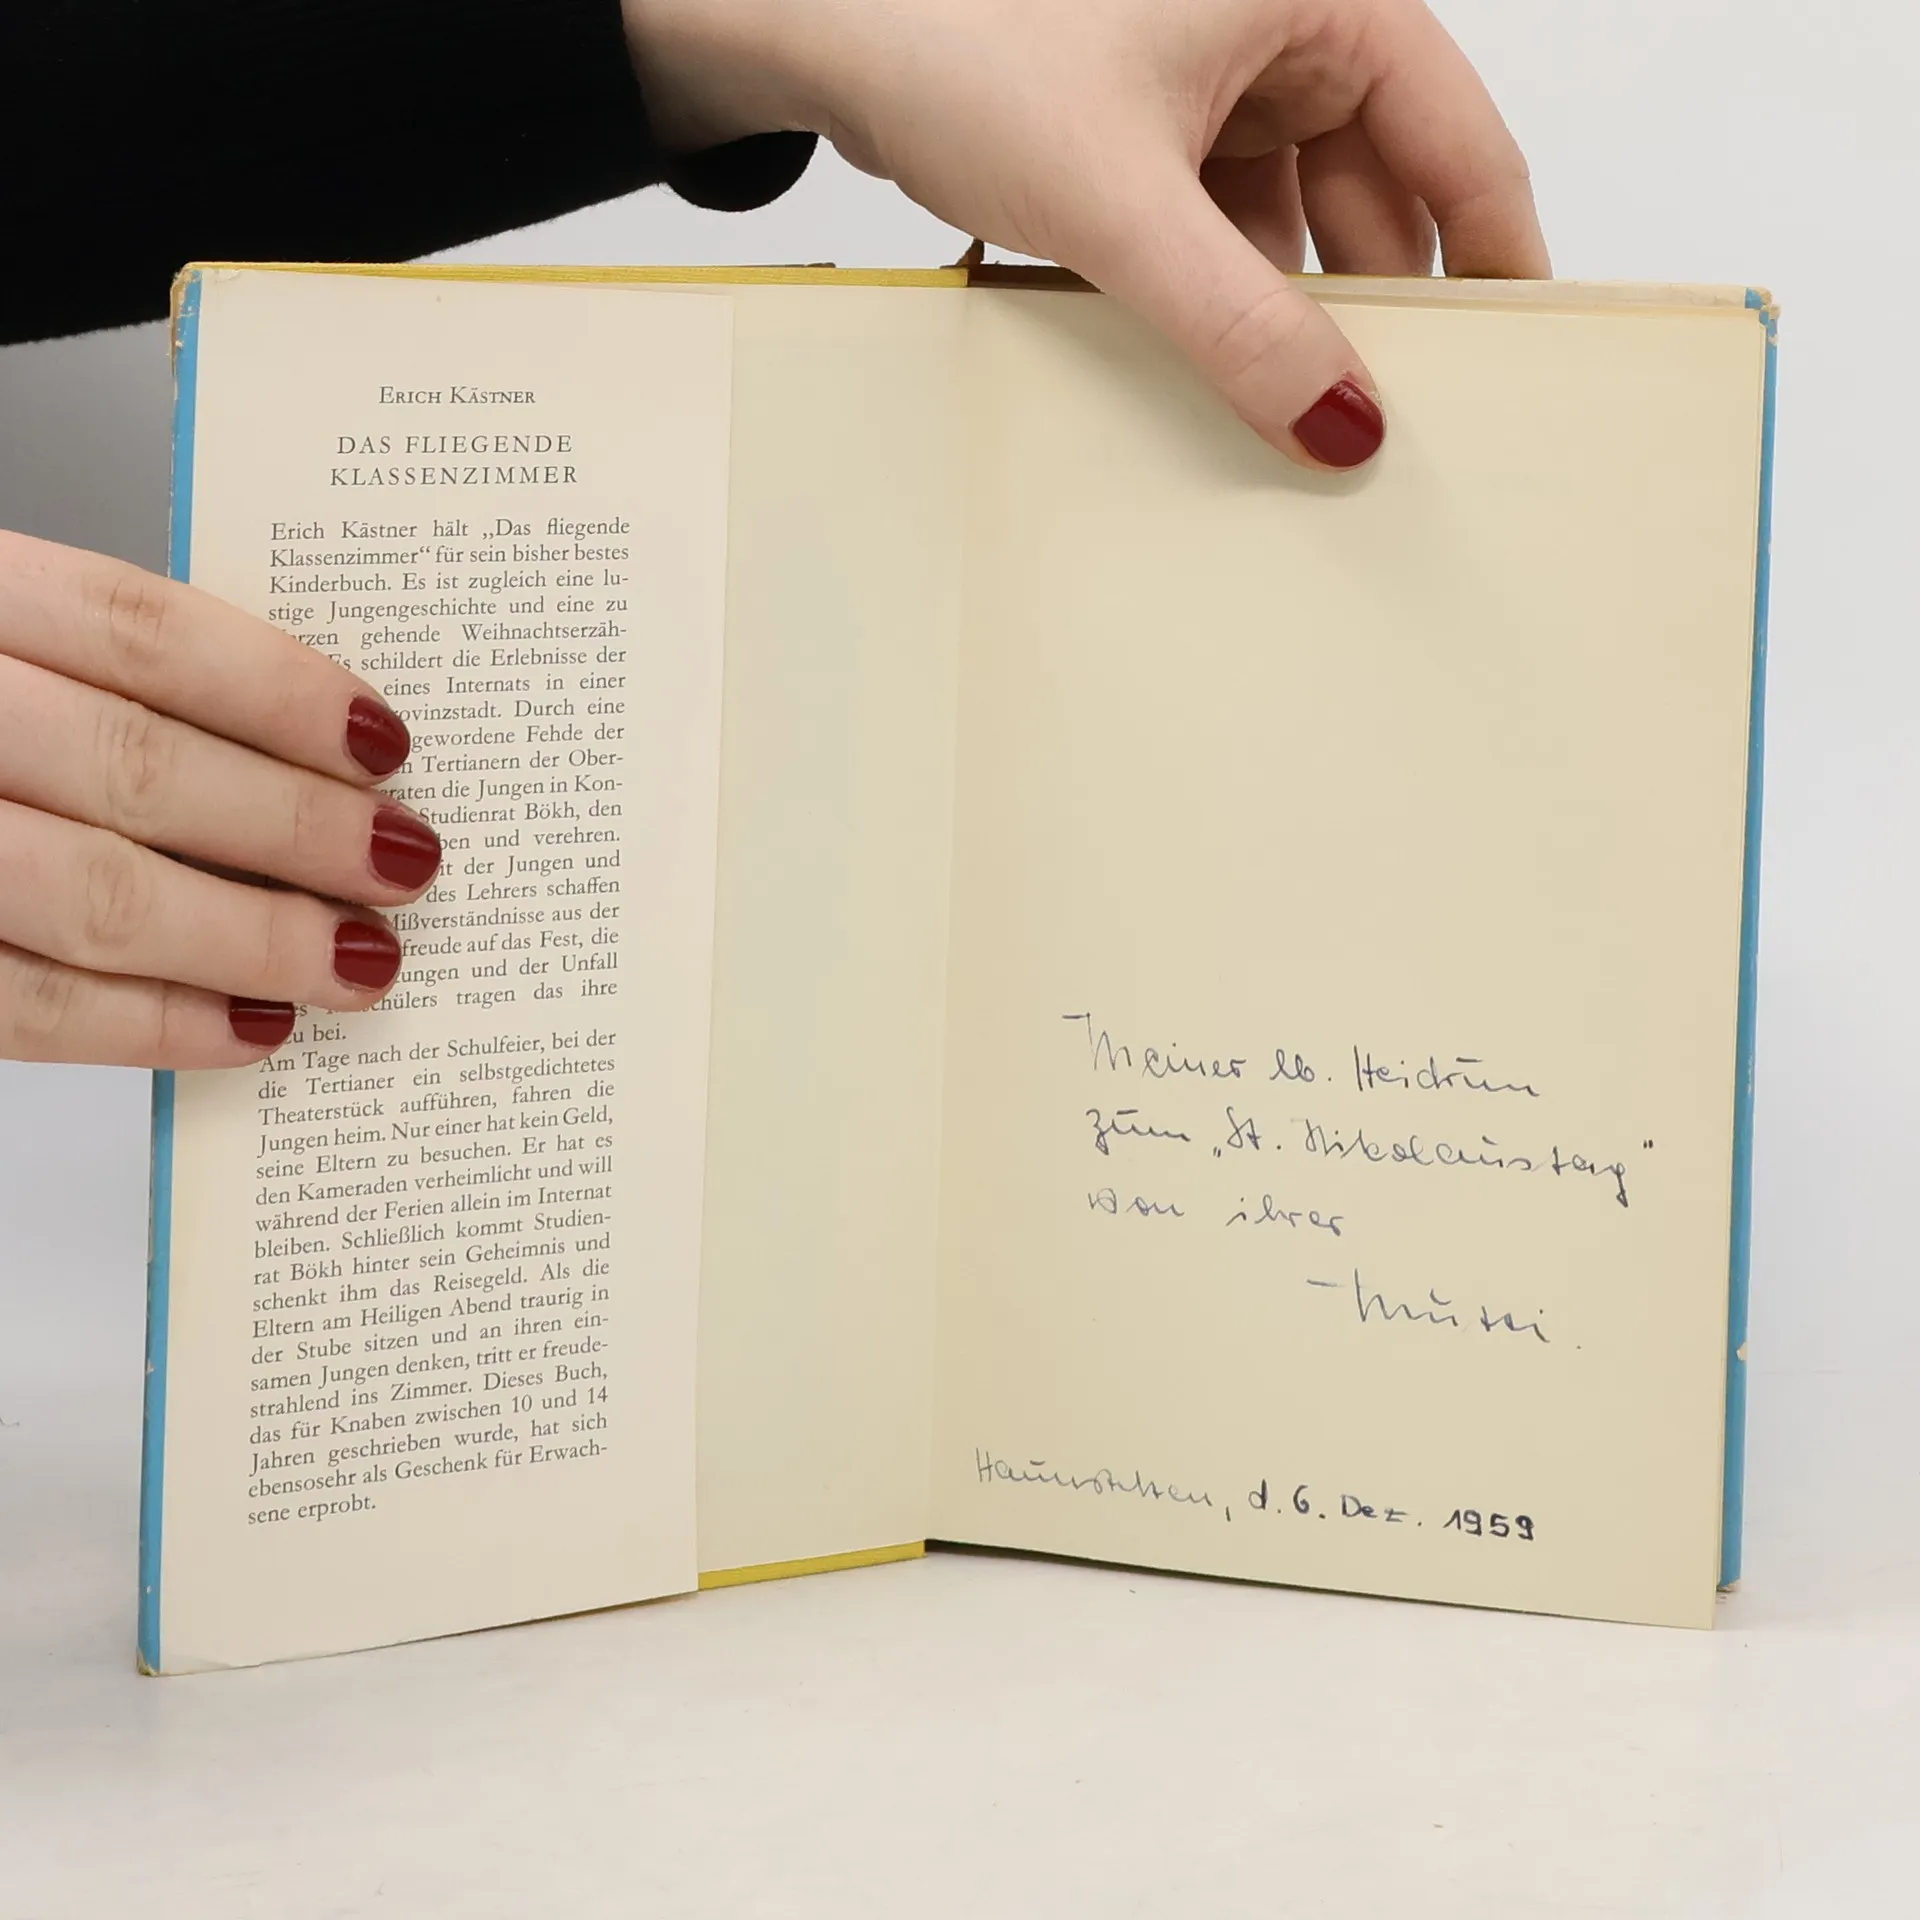 ERICH KÄSTNER
DAS FLIEGENDE
KLASSENZIMMER
Erich Kästner hält „Das fliegende
Klassenzimmer“ für sein bisher bestes
Kinderbuch. Es ist zugleich eine lu-
stige Jungengeschichte und eine zu
gehende Weihnachtserzäh-
Es schildert die Erlebnisse der
eines Internats in einer
Durch eine
gewordene Fehde der
Tertianern der Ober-
die Jungen in Kon-
Studienrat Bökh, den
und verehren.
der Jungen und
des Lehrers schaffen
Mißverständnisse aus der
auf das Fest, die
und der Unfall
tragen das ihre
bei.
Am Tage nach der Schulfeier, bei der
die Tertianer ein selbstgedichtetes
Theaterstück aufführen, fahren die
Jungen heim. Nur einer hat kein Geld,
seine Eltern zu besuchen. Er hat es
den Kameraden verheimlicht und will
während der Ferien allein im Internat
bleiben. Schließlich kommt Studien-
rat Bökh hinter sein Geheimnis und
schenkt ihm das Reisegeld. Als die
Eltern am Heiligen Abend traurig in
der Stube sitzen und an ihren ein-
samen Jungen denken, tritt er freude-
strahlend ins Zimmer. Dieses Buch,
das für Knaben zwischen 10 und 14
Jahren geschrieben wurde, hat sich
ebensosehr als Geschenk für Erwach-
sene erprobt.
Meiner lb. Heidrun
zum „St. Nikolaustag"
von ihrer
Mutti.
Haunstetten, d. 6. Dez. 1959